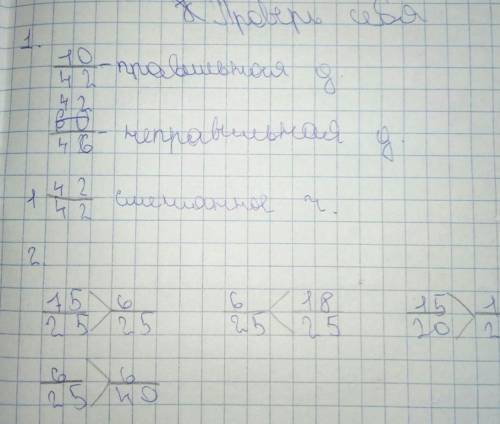 Проверь себя
1.
10/42 - правильная д.
42
60/46 - неправильная д.
1 42/42 смешанное ч.
2.
15/25 > 6/25 6/25 < 18/25 15/20 >
6/25 > 6/40